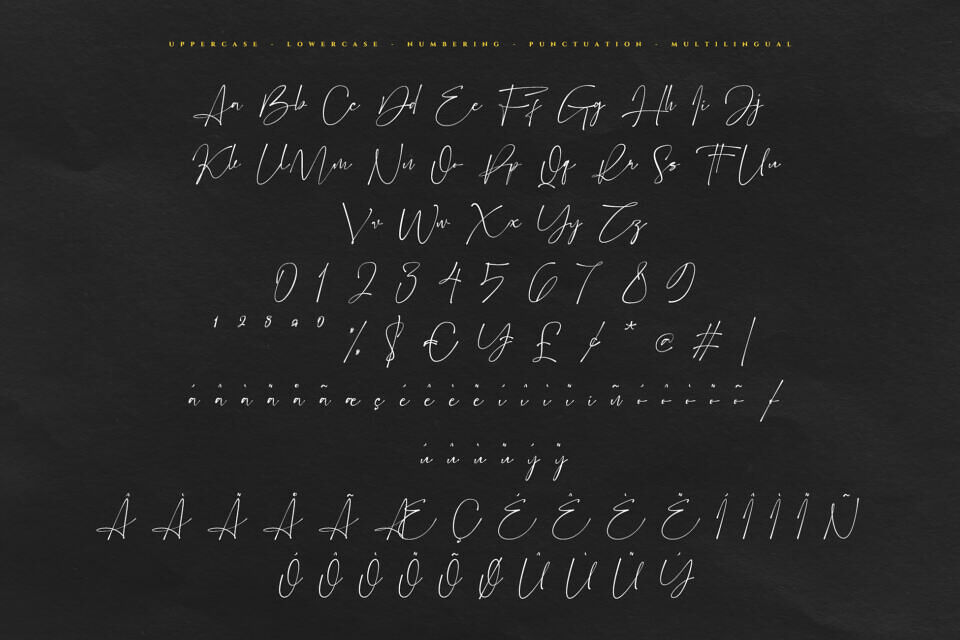 UPPERCASE - LOWERCASE - NUMBERING - PUNCTUATION - MULTILINGUAL
Aa Bb Cc Dd Ee Ff Gg Hh Ii Jj
Kk Ll Mm Nn Oo Pp Qq Rr Ss Tt Uu
Vv Ww Xx Yy Zz
0 1 2 3 4 5 6 7 8 9
% $ € ¥ £ ¢ * @ # |
á â à ä å ã æ ç é ê è ë í î ì ï i ñ ó ô ò ö õ
ú û ù ü ý ÿ
Â À Ä Å Ã Æ Ç É Ê È Ë Í Î Ì Ï Ñ
Ó Ô Ò Ö Õ Ø Û Ù Ü Ý